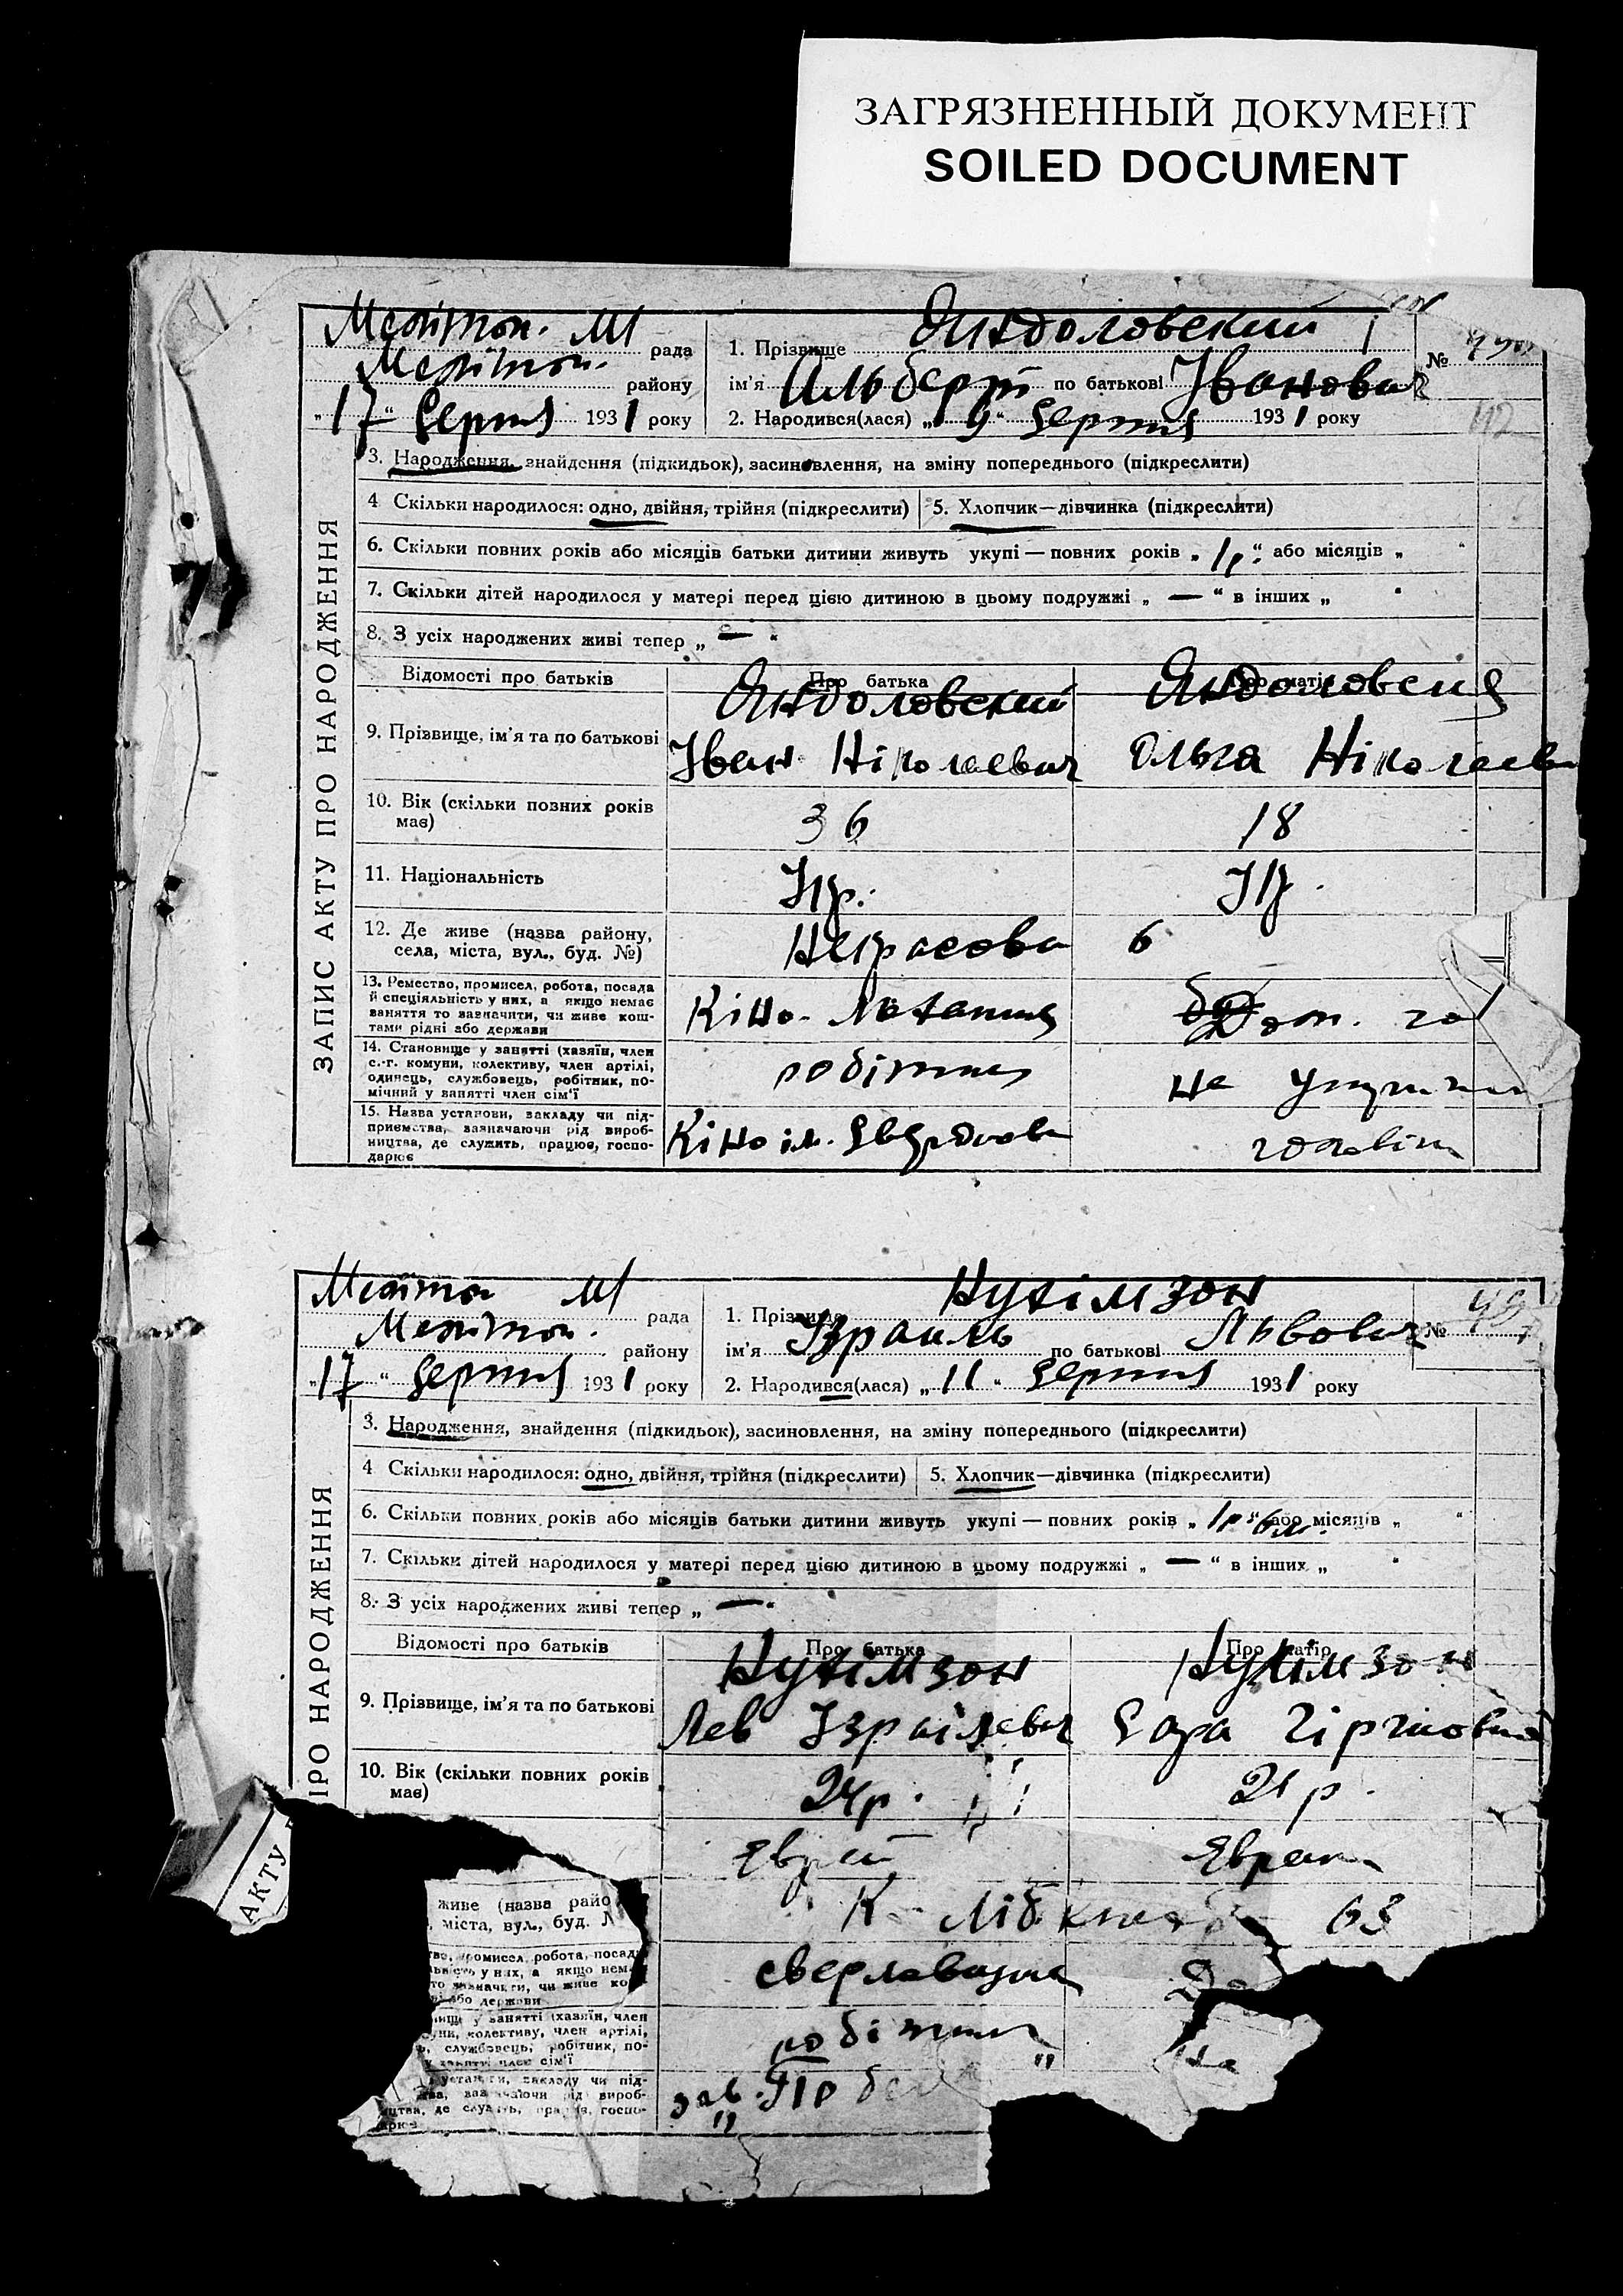 ЗАГРЯЗНЕННЫЙ ДОКУМЕНТ
SOILED DOCUMENT
ЗАПИС АКТУ ПРО НАРОДЖЕННЯ
Меліт. МІ рада
Меліт. району
„17“ Серпня 1931 року
1. Прізвище Яндоловский
ім'я Альберт по батькові Іванович
№
2. Народився(лася) „9“ Серпня 1931 року
3. Народження, знайдення (підкидьок), засиновлення, на зміну попереднього (підкреслити)
4 Скільки народилося: одно, двійня, трійня (підкреслити)
5. Хлопчик—дівчинка (підкреслити)
6. Скільки повних років або місяців батьки дитини живуть укупі — повних років „1р.“ або місяців „ “
7. Скільки дітей народилося у матері перед цією дитиною в цьому подружжі „ — “ в інших „ “
8. З усіх народжених живі тепер „ — “
Відомості про батьків Про батька Про матір
9. Прізвище, ім'я та по батькові
Яндоловский
Іван Ніколаевич
Яндоловская
Ольга Ніколаевн
10. Вік (скільки повних років має)
36 18
11. Національність
12. Де живе (назва району, села, міста, вул., буд. №)
Некрасова 6
13. Ремество, промисел, робота, посада
й спеціяльність у них, а якщо немає
заняття то зазначити, чи живе кош-
тами рідні або держави
Кіно-
14. Становище у занятті (хазяїн, член
с.-г. комуни, колективу, член артілі,
одинець, службовець, робітник, по-
мічний у занятті член сім'ї
робітник
15. Назва установи, закладу чи під-
приємства, зазначаючи рід вироб-
ництва, де служить, працює, госпо-
дарює
Кіно ім. Свердлова
ІРО НАРОДЖЕННЯ
АКТУ
МІ рада
Меліт. району
„17“ Серпня 1931 року
1. Прізвище Нухімзон
ім'я Ізраиль по батькові Львович №
2. Народився(лася) „11“ Серпня 1931 року
3. Народження, знайдення (підкидьок), засиновлення, на зміну попереднього (підкреслити)
4 Скільки народилося: одно, двійня, трійня (підкреслити)
5. Хлопчик—дівчинка (підкреслити)
6. Скільки повних років або місяців батьки дитини живуть укупі — повних років „1р“ 6м. або місяців „ “
7. Скільки дітей народилося у матері перед цією дитиною в цьому подружжі „ — “ в інших „ “
8. З усіх народжених живі тепер „ — “
Відомості про батьків Про батька Про матір
9. Прізвище, ім'я та по батькові
Нухімзон
Лев Ізраілевич
Нухімзон
Сара Гіршовна
10. Вік (скільки повних років має)
24р. 21р.
Еврей
живе (назва райо
міста, вул., буд.
К Лібкнехта 63
промисел, робота, посад
у них, а якщо нем
чи живе ко
або держави
у занятті (хазяїн, член
колективу, член артілі,
службовець, робітник, по-
у занятті член сім'ї
робітник
закладу чи під-
рід вироб-
ництва, де служить, працює, госпо-
зав.